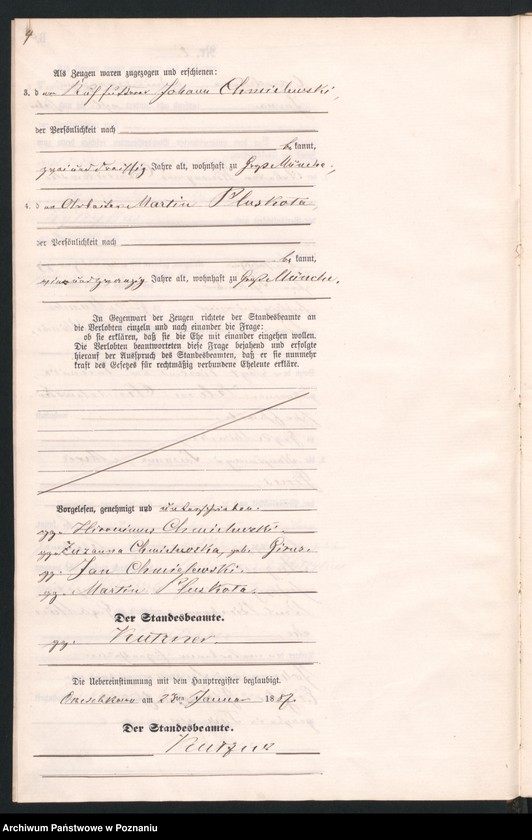 4
Als Zeugen waren zugezogen und erschienen:
3. der Kuhfütterer Johann Chmielewski,
der Persönlichkeit nach
bekannt,
zweiunddreißig Jahre alt, wohnhaft zu Groß Münche;
4. der Arbeiter Martin Pluskota,
der Persönlichkeit nach
bekannt,
undzwanzig Jahre alt, wohnhaft zu Groß Münche.
In Gegenwart der Zeugen richtete der Standesbeamte an
die Verlobten einzeln und nach einander die Frage:
ob sie erklären, daß sie die Ehe mit einander eingehen wollen.
Die Verlobten beantworteten diese Frage bejahend und erfolgte
hierauf der Ausspruch des Standesbeamten, daß er sie nunmehr
kraft des Gesetzes für rechtmäßig verbundene Eheleute erkläre.
Vorgelesen, genehmigt und unterschrieben.
gez. Hieronimus Chmielewski.
gez. Zuzanna Chmielewska, geb.
gez. Jan Chmielewski.
gez. Martin Pluskota.
Der Standesbeamte.
gez. Kutzner.
Die Uebereinstimmung mit dem Hauptregister beglaubigt.
am 2ten Januar 1887.
Der Standesbeamte.
Kutzner
Archiwum Państwowe w Poznaniu